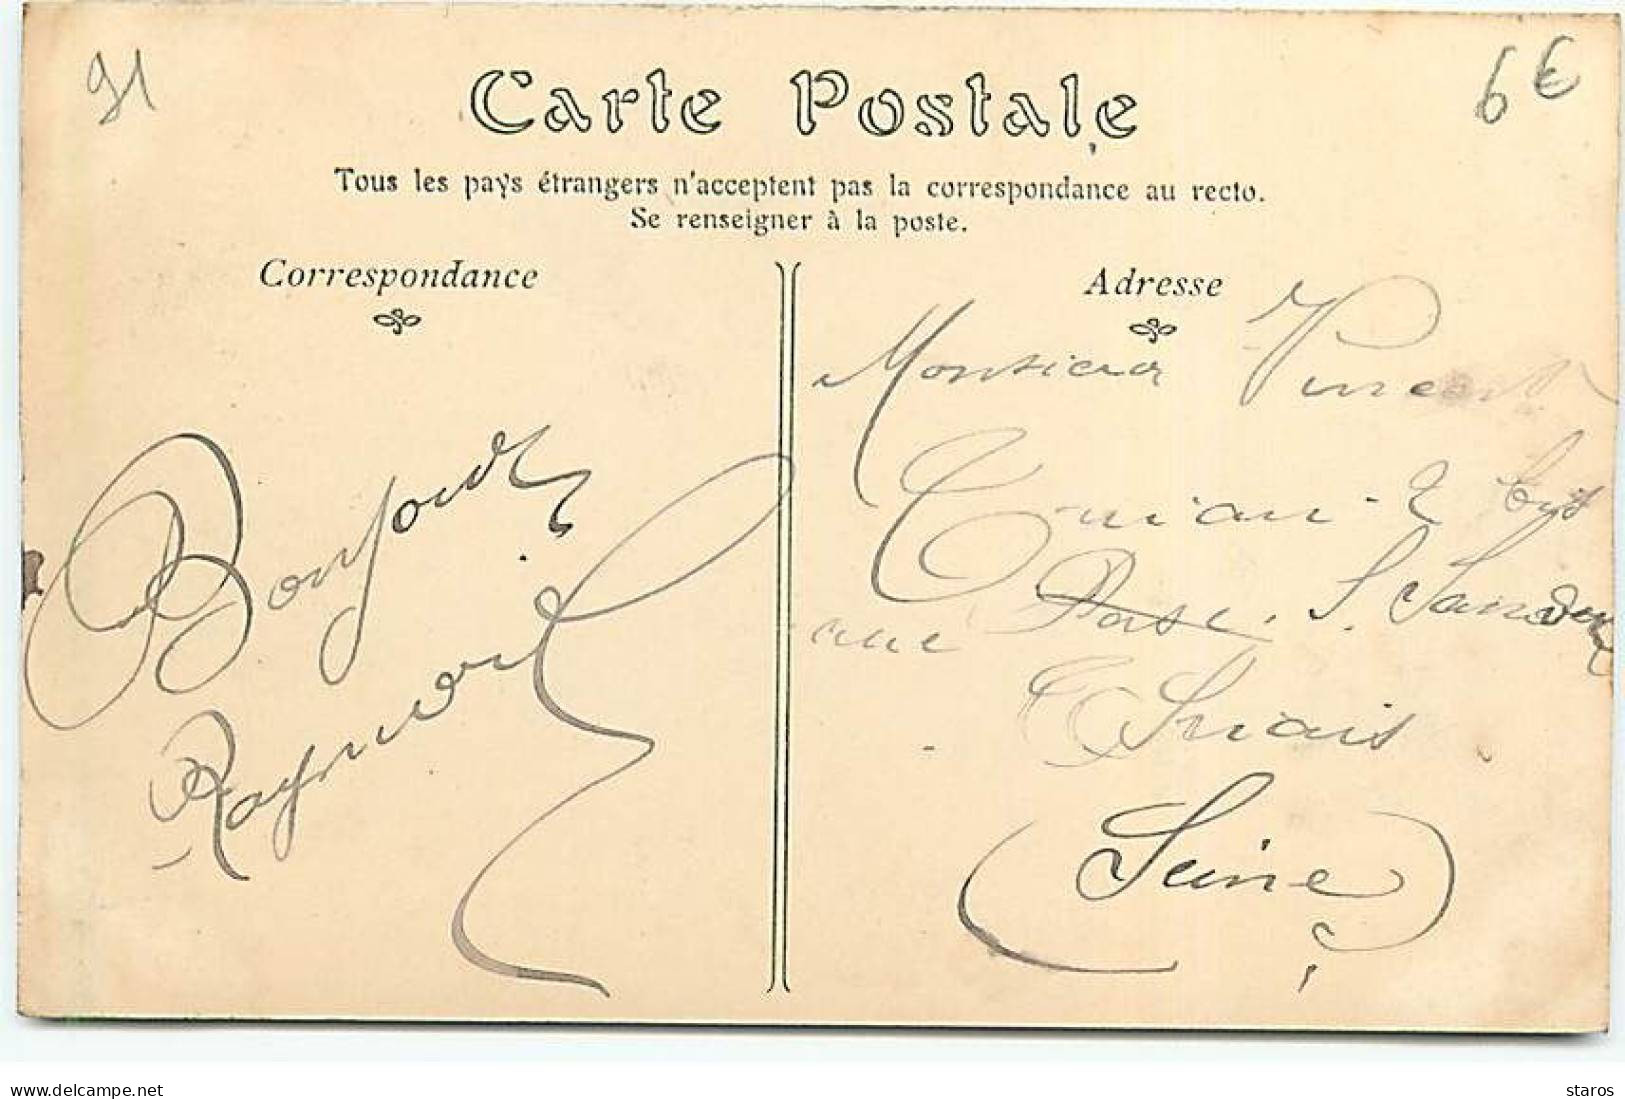 91
6€
Carte Postale
Tous les pays étrangers n'acceptent pas la correspondance au recto.
Se renseigner à la poste.
Correspondance
Adresse
Bonjour
Monsieur Vincent
2 bis
rue
(Seine)
delcampe.net
staros